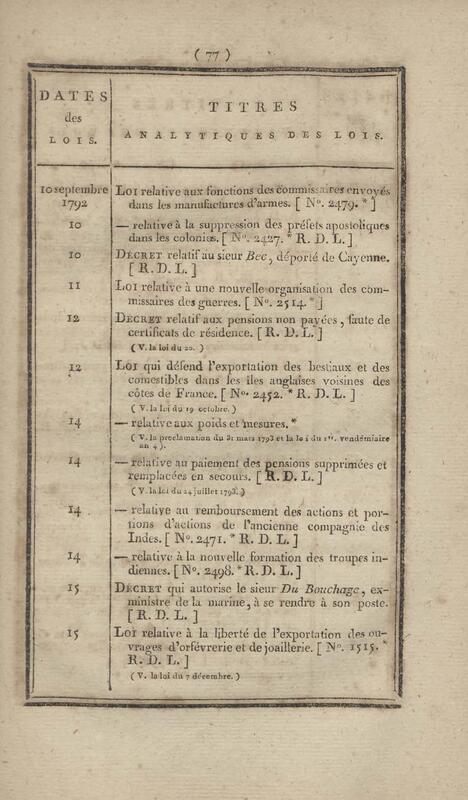 ( 77 )
DATES
des
LOIS.
TITRES
ANALYTIQUES DES LOIS.
10 septembre
1792
LOI relative aux fonctions des commissaires envoyés
dans les manufactures d'armes. [ N°. 2479. * ]
10
— relative à la suppression des préfets apostoliques
dans les colonies. [ N°. 2427. * R. D. L. ]
10
DÉCRET relatif au sieur Bec, déporté de Cayenne.
[ R. D. L. ]
11
LOI relative à une nouvelle organisation des com-
missaires des guerres. [ N°. 2514. * ]
12
DÉCRET relatif aux pensions non payées, faute de
certificats de résidence. [ R. D. L. ]
( V. la loi du 20. )
12
LOI qui défend l'exportation des bestiaux et des
comestibles dans les îles anglaises voisines des
côtes de France. [ N°. 2452. * R. D. L. ]
( V. la loi du 19 octobre. )
14
— relative aux poids et mesures. *
( V. la proclamation du 31 mars 1793 et la loi du 1er. vendémiaire
an 4 ).
14
— relative au paiement des pensions supprimées et
remplacées en secours. [ R. D. L. ]
( V. la loi du 24 juillet 1793. )
14
— relative au remboursement des actions et por-
tions d'actions de l'ancienne compagnie des
Indes. [ N°. 2471. * R. D. L. ]
14
— relative à la nouvelle formation des troupes in-
diennes. [ N°. 2498. * R. D. L. ]
15
DÉCRET qui autorise le sieur Du Bouchage, ex-
ministre de la marine, à se rendre à son poste.
[ R. D. L. ]
15
LOI relative à la liberté de l'exportation des ou-
vrages d'orfévrerie et de joaillerie. [ N°. 1515. *
R. D. L. ]
( V. la loi du 7 décembre. )